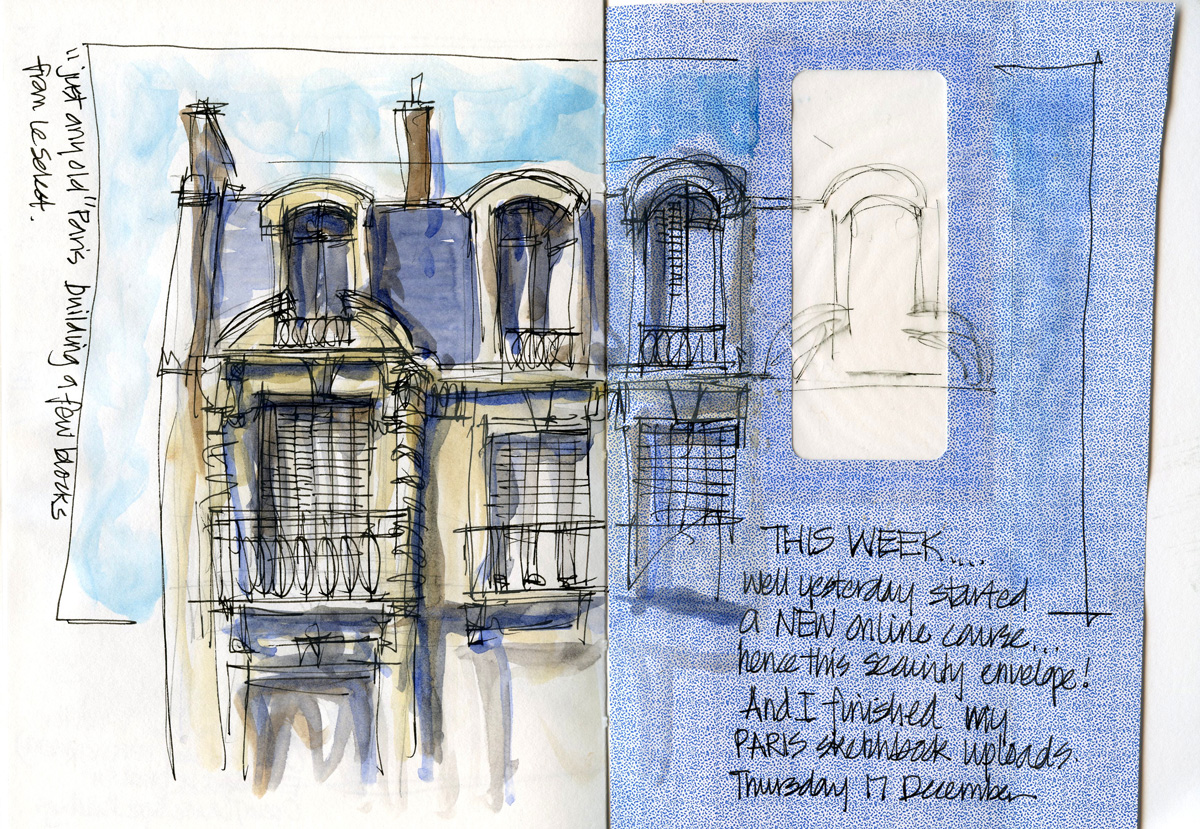 "just any old" Paris building a few blocks
from Le Select.
THIS WEEK.....
Well yesterday started
a NEW online course...
hence this security envelope!
And I finished my
PARIS sketchbook uploads.
Thursday 17 December